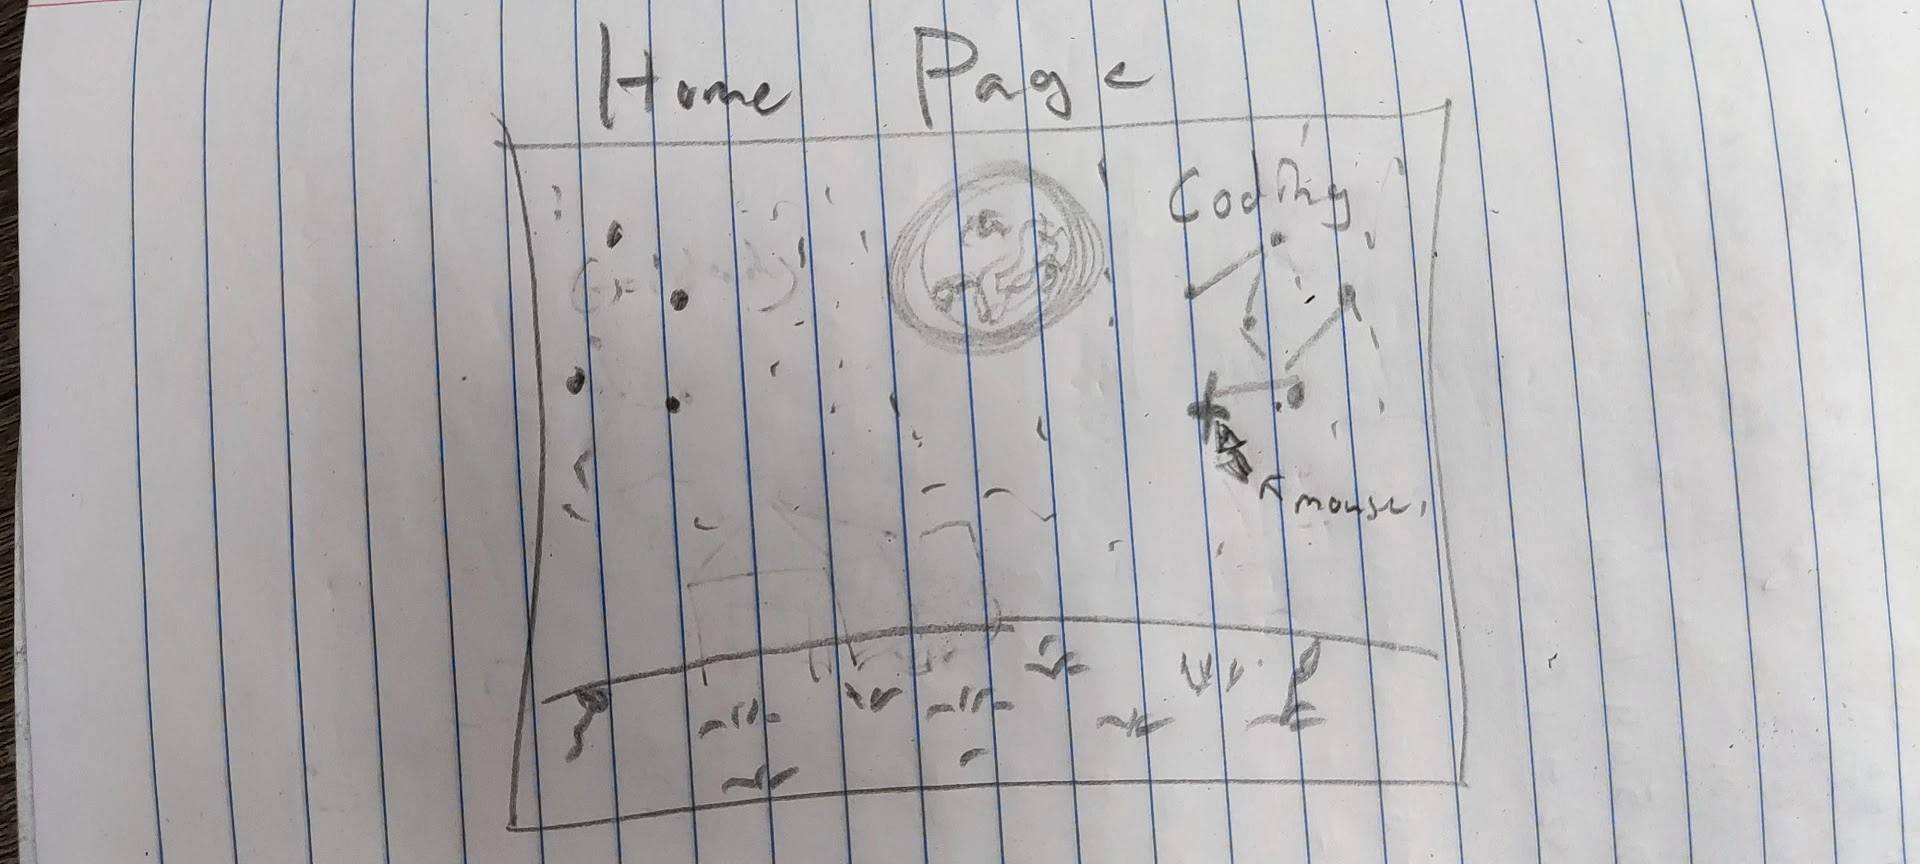 Home Page
Coding
mouse